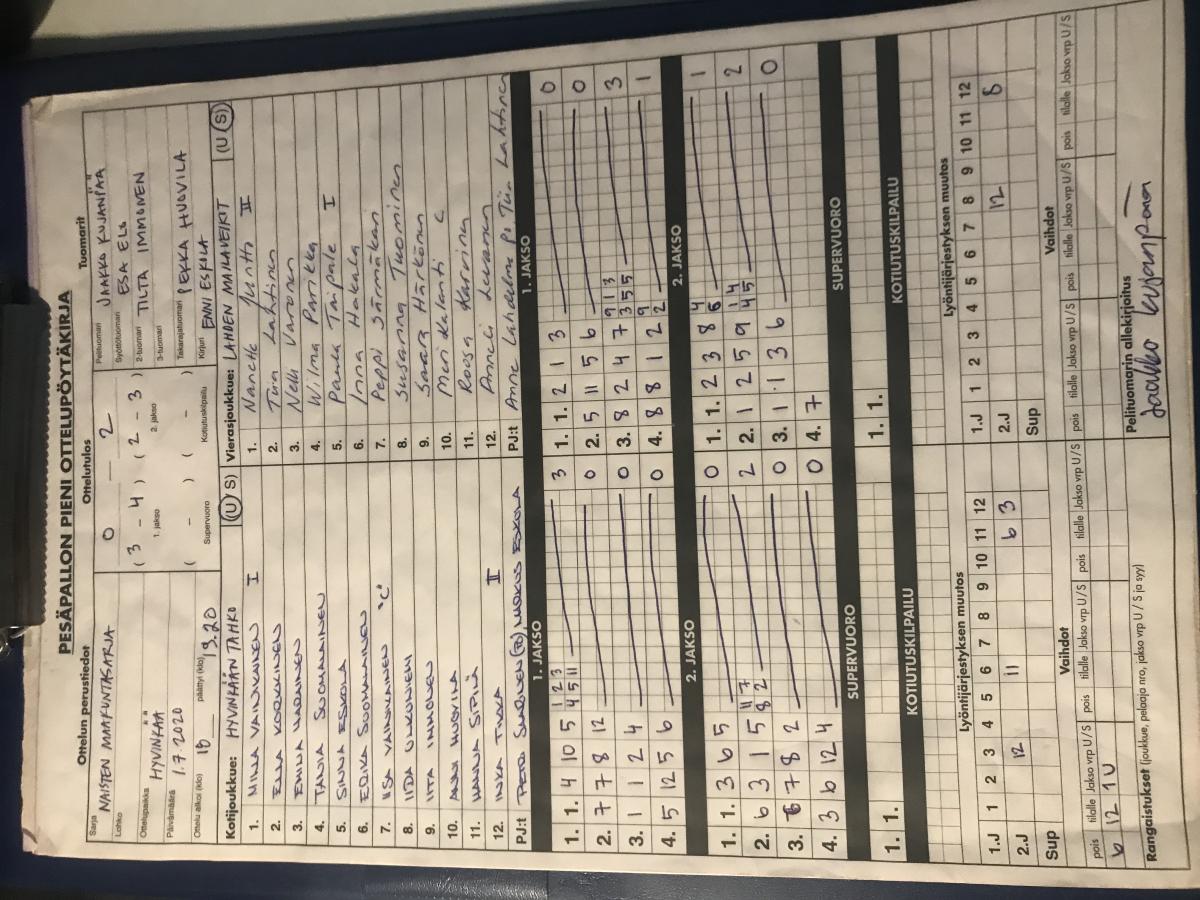 PESÄPALLON PIENI OTTELUPÖYTÄKIRJA
Ottelun perustiedot
Sarja NAISTEN MAAKUNTASARJA
Lohko
Ottelupaikka HYVINKÄÄ
Päivämäärä 1.7 2020
Ottelu alkoi (klo) 18 päättyi (klo) 19.20
Ottelutulos
0 – 2
( 3 – 4 ) ( 2 – 3 )
1. jakso 2. jakso
( – ) ( – )
Supervuoro Kotiutuskilpailu
Tuomarit
Pelituomari JAAKKO KUJANPÄÄ
Syöttötuomari ESA ELO
2-tuomari TILTA IMMONEN
3-tuomari
Takarajatuomari PEKKA HUOVILA
Kirjuri ENNI ESKOLA
Kotijoukkue: HYVINKÄÄN TAHKO (U S)
1. MILLA VAINIKAINEN I
2. ELLA KORKKINEN
3. EMILIA
4. TANJA SUOMALAINEN
5. SINNA ESKOLA
6. ERIKA SUOMALAINEN
7. IISA VAINIKAINEN "C"
8. IIDA
9. IITA IMMONEN
10. ANNI HUOVILA
11. HANNA SIPILÄ
12. INKA TIKKA II
PJ:t MARKUS ESKOLA
Vierasjoukkue: LAHDEN MAILAVEIKOT (U S)
1. Nanette Juntto II
2. Tiia Lahtinen
3. Nelli Varonen
4. Wilma Parikka
5. Paula Taipale I
6. Inna Hakala
7. Peppi Särmäkari
8. Susanna Tuominen
9. Saara Härkönen
10. Meri Kalanti C
11. Roosa Karvinen
12. Anneli Luvanen
PJ:t Anne Lahdelma PJ Tiia Lahtinen
1. JAKSO
1. 1. 4 10 5 1 2 3 4 5 11 3
2. 7 7 8 12 0
3. 1 1 2 4 0
4. 5 12 5 6 0
2. JAKSO
1. 1. 3 6 5 0
2. 6 3 1 5 8 11 2 7 2
3. 6 7 8 2 0
4. 3 6 12 4 0
SUPERVUORO
1. 1.
KOTIUTUSKILPAILU
1. JAKSO
1. 1. 2 1 3 0
2. 5 11 5 6 0
3. 8 2 4 7 3 9 5 1 5 3 3
4. 8 8 1 2 2 9 1
2. JAKSO
1. 1. 2 3 8 6 4 1
2. 1 2 5 9 4 1 5 4 2
3. 1 1 3 6 0
4. 7
SUPERVUORO
1. 1.
KOTIUTUSKILPAILU
Lyöntijärjestyksen muutos
1 2 3 4 5 6 7 8 9 10 11 12
1.J
2.J 12 11 6 3
Sup
Lyöntijärjestyksen muutos
1 2 3 4 5 6 7 8 9 10 11 12
1.J
2.J 12 8
Sup
Vaihdot
pois tilalle Jakso vrp U/S pois tilalle Jakso vrp U/S pois tilalle Jakso vrp U/S
6 12 1U
Vaihdot
pois tilalle Jakso vrp U/S pois tilalle Jakso vrp U/S pois tilalle Jakso vrp U/S
Rangaistukset (joukkue, pelaaja nro, jakso vrp U / S ja syy)
Pelituomarin allekirjoitus
Jaakko Kujanpää